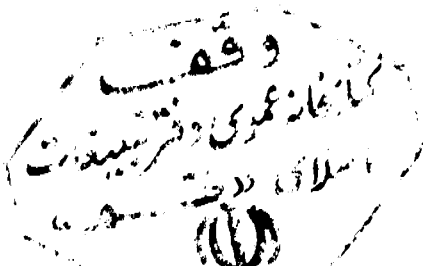 وقف
کتابخانه عمومی دفتر تبلیغات
اسلامی